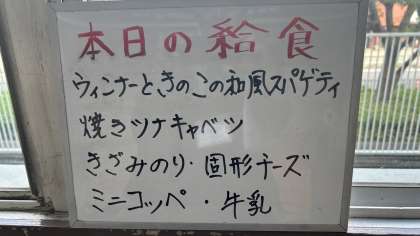 本日の給食
ウィンナーときのこの和風スパゲティ
焼きツナキャベツ
きざみのり・固形チーズ
ミニコッペ・牛乳